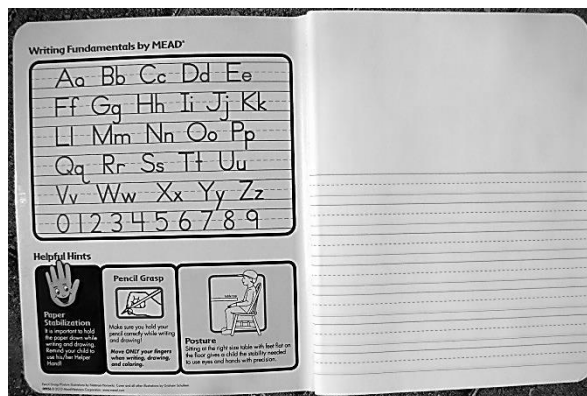 Writing Fundamentals by MEAD®
Aa Bb Cc Dd Ee
Ff Gg Hh Ii Jj Kk
Ll Mm Nn Oo Pp
Qq Rr Ss Tt Uu
Vv Ww Xx Yy Zz
0 1 2 3 4 5 6 7 8 9
Helpful Hints
Paper
Stabilization
It is important to hold
the paper down while
writing and drawing.
Remind your child to
use his/her Helper
Hand!
Pencil Grasp
Make sure you hold your
pencil correctly while writing
and drawing!
Move ONLY your fingers
when writing, drawing,
and coloring.
Posture
Sitting at the right size table with feet flat on
the floor gives a child the stability needed
to use eyes and hands with precision.